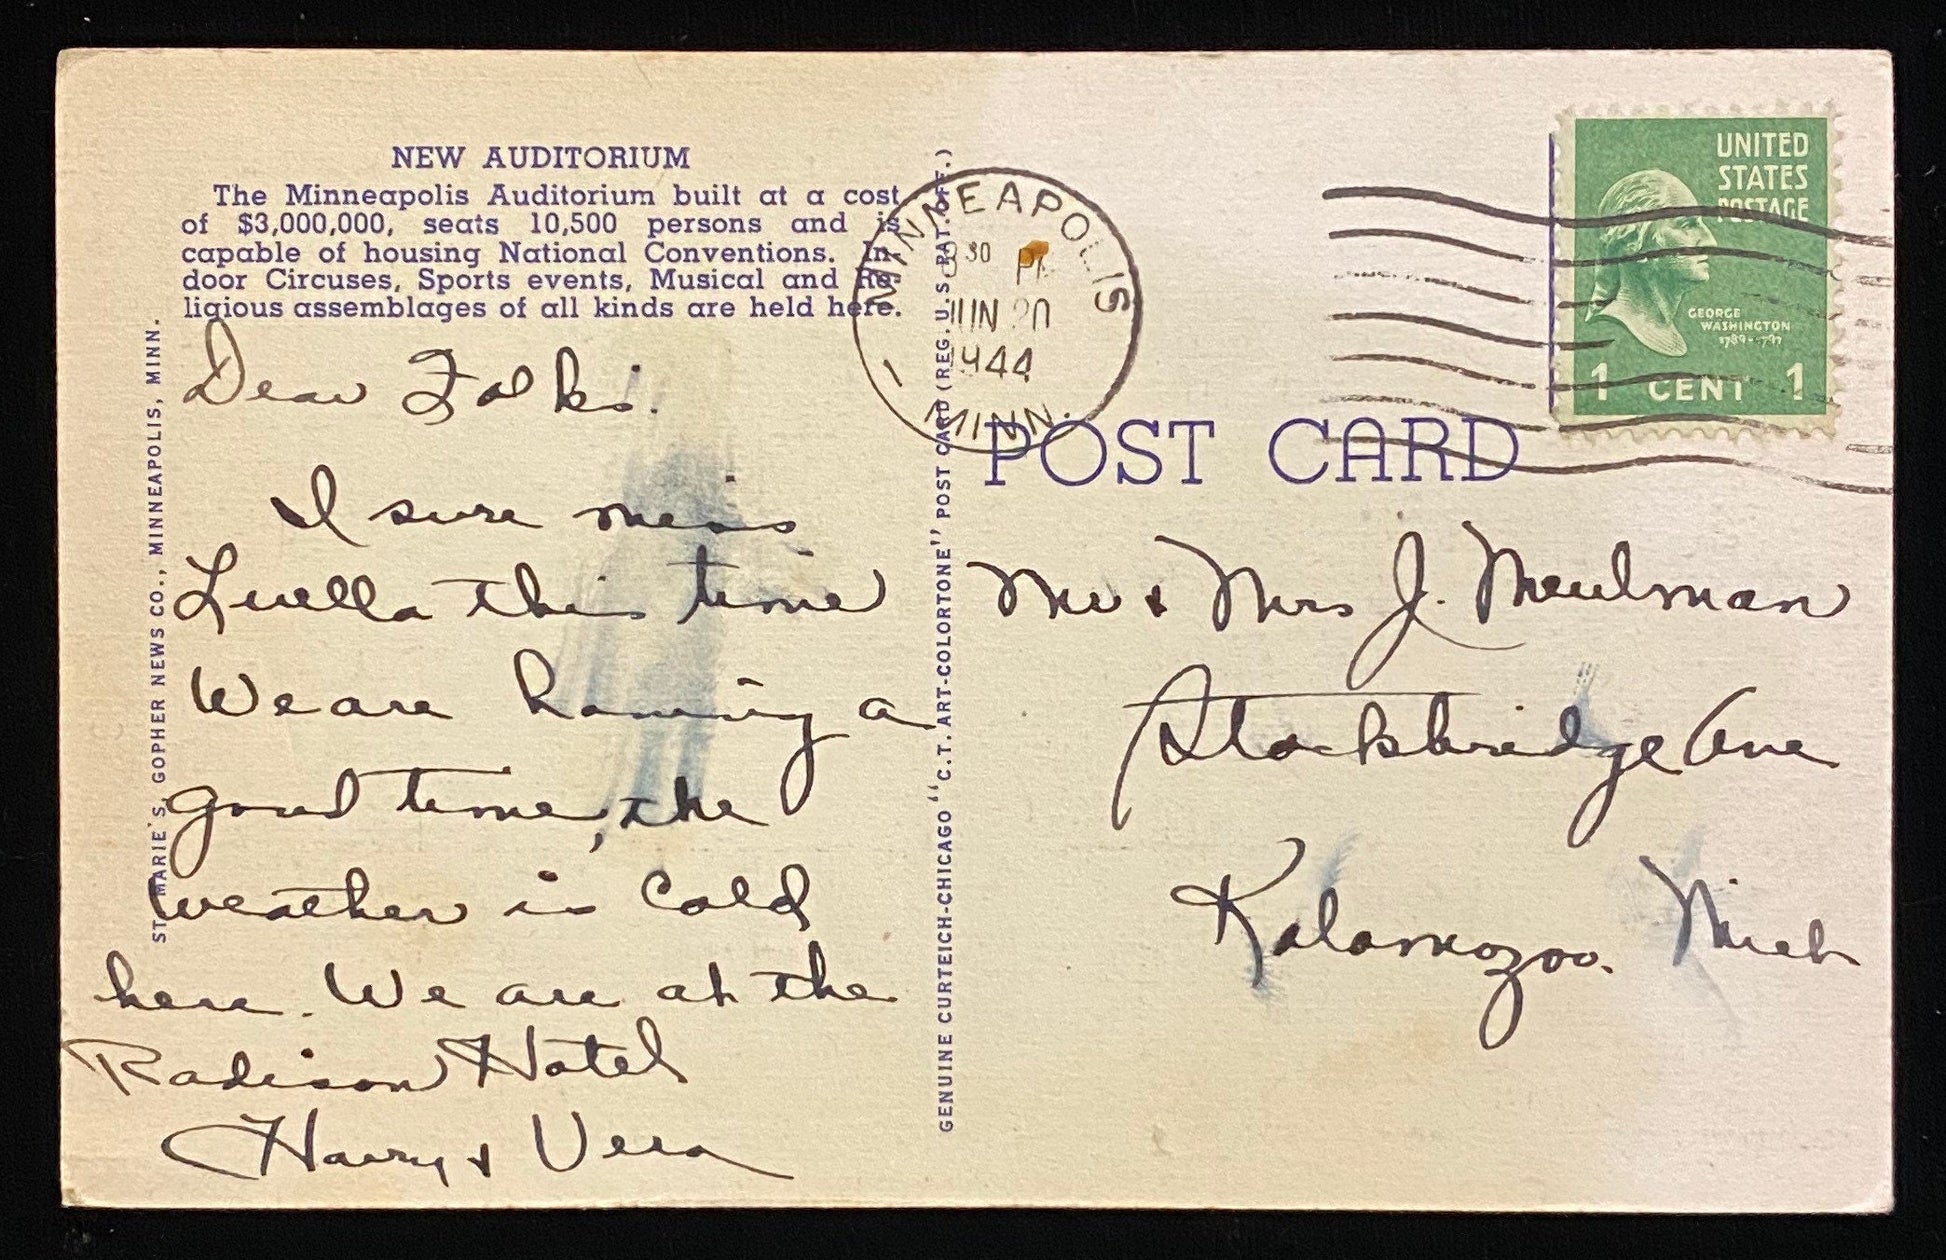 NEW AUDITORIUM
The Minneapolis Auditorium built at a cost
of $3,000,000, seats 10,500 persons and is
capable of housing National Conventions. In-
door Circuses, Sports events, Musical and Re-
ligious assemblages of all kinds are held here.
ST. MARIE'S, GOPHER NEWS CO., MINNEAPOLIS, MINN.
Dear Folks.
I sure miss
Luella this time
We are having a
good time, the
weather is Cold
here. We are at the
Radison Hotel
Harry & Vera
GENUINE CURTEICH-CHICAGO "C.T. ART-COLORTONE" POST CARD (REG. U.S. PAT. OFF.)
MINNEAPOLIS
30 PM
JUN 20
1944
MINN.
1
UNITED
STATES
POSTAGE
GEORGE
WASHINGTON
1789-1797
1 CENT 1
POST CARD
Mr & Mrs J. Meulman
Stockbridge Ave
Kalamozoo. Mich